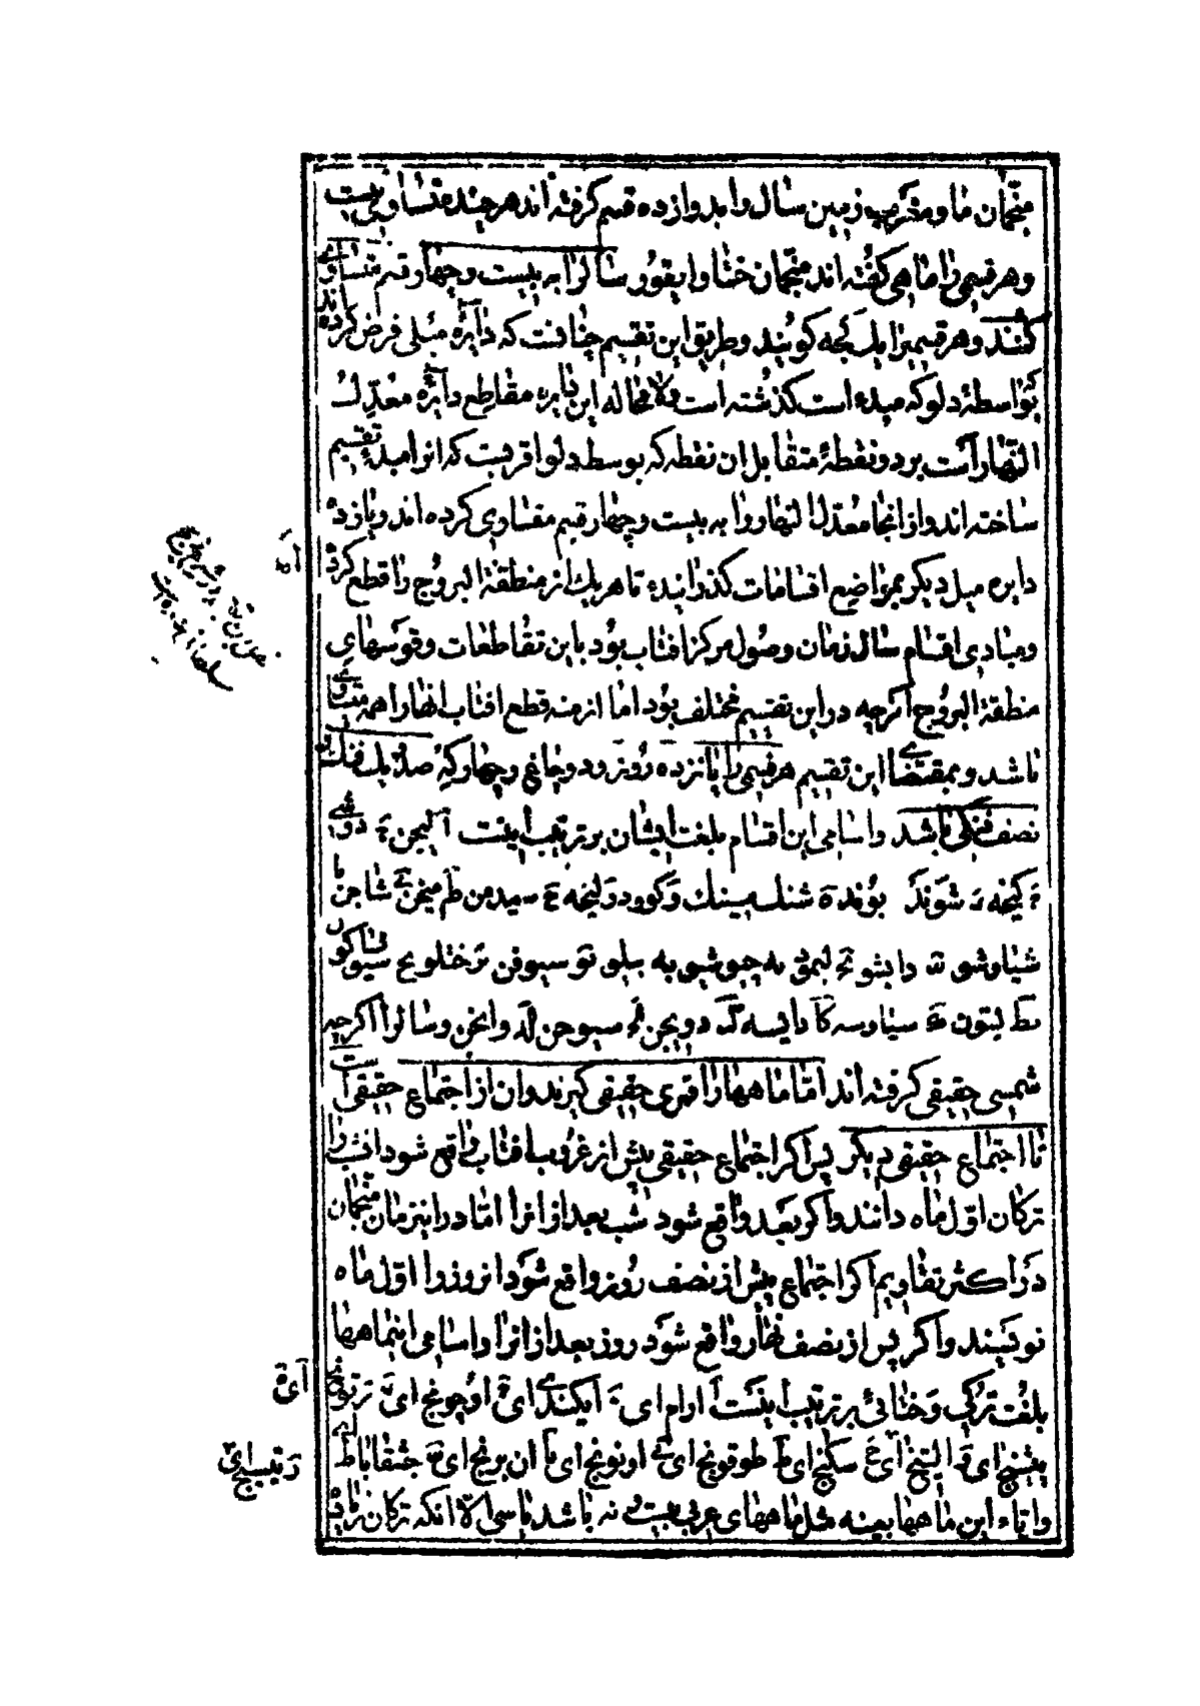 منجمان ما و مشرق زمین سال را بدوازده قسم کرفته اند هر چند متساوی نیست
و هر قسمی را ماهی کفته اند منجمان ختا و ایغور سالرا به بیست و چهار قسم متساوی
کنند و هر قسمیرا یک کجه کویند و طریق این تقسیم چنانست که دایره میلی فرض کرده اند
که بواسطهٔ دلو که مبدء است کذشته است و لا محاله این دایره مقاطع دایرهٔ معدل
النهار است بر دو نقطهٔ متقابل ان نقطه که بوسط دلو اقربست که انرا مبدء تقسیم
ساخته اند و از انجا معدل النهار را به بیست و چهار قسم متساوی کرده اند و یازده
دایره میل دیکر بمواضع اقسامات کذرانیده تا هر یک از منطقة البروج را قطع کرده
و مبادی اقسام سال زمان وصول مرکز افتاب بود باین تقاطعات و قوسهای
منطقة البروج اکرچه در این تقسیم مختلف بود اما ازمنه قطع افتاب انها را همه متساوی
باشد و بمقتضا این تقسیم هر قسمی را پانزده روز و دو چاغ و چهار که صد یک فنک
نصف فنکی باشد و اسامی این اقسام بلغت ایشان بر ترتیب اینست آ لیچن ب دوشی
ج کیخه د شونک بوند ه شنک مینک و کوو دو لیخه ح سیدمن ط میخن ی شاجن یا
شیاوشو یب دایشو یج لیمو ید چوشو یه بیلو یو سیوفن یز ختلو یح سیواکون
یط لیتون ک سیاوسه کا دایسه کب دویچن کج سیوحن کد وایخن و سالرا اکرچه
شمسی حقیقی کرفته اند اما ماهها را قمری حقیقی کیرند و ان از اجتماع حقیقی است
تا اجتماع حقیقی دیکر پس اکر اجتماع حقیقی پیش از غروب افتاب واقع شود انشب را
ترکان اول ماه دانند و اکر بعد واقع شود شب بعد از انرا اما در اینزمان منجمان
در اکثر تقاویم اکر اجتماع پیش از نصف روز واقع شود انروز را اول ماه
نویسند و اکر پس از نصف نهار واقع شود روز بعد از انرا و اسامی اینماهها
بلغت ترکی و ختائی بر ترتیب اینست آ ارام ای ب ایکندی ای ج اوچونج ای د ترتونج
بیشنج ای و التینج ای ز سکزنج ای ط طوقونج ای ی اونونج ای یا ان برنج ای یب جقشاباط ای
و ایام این ماهها بعینه مثل ماههای عربی بیست و نه باشد یا سی الا انکه ترکان
آی ه
ز یتینج ای